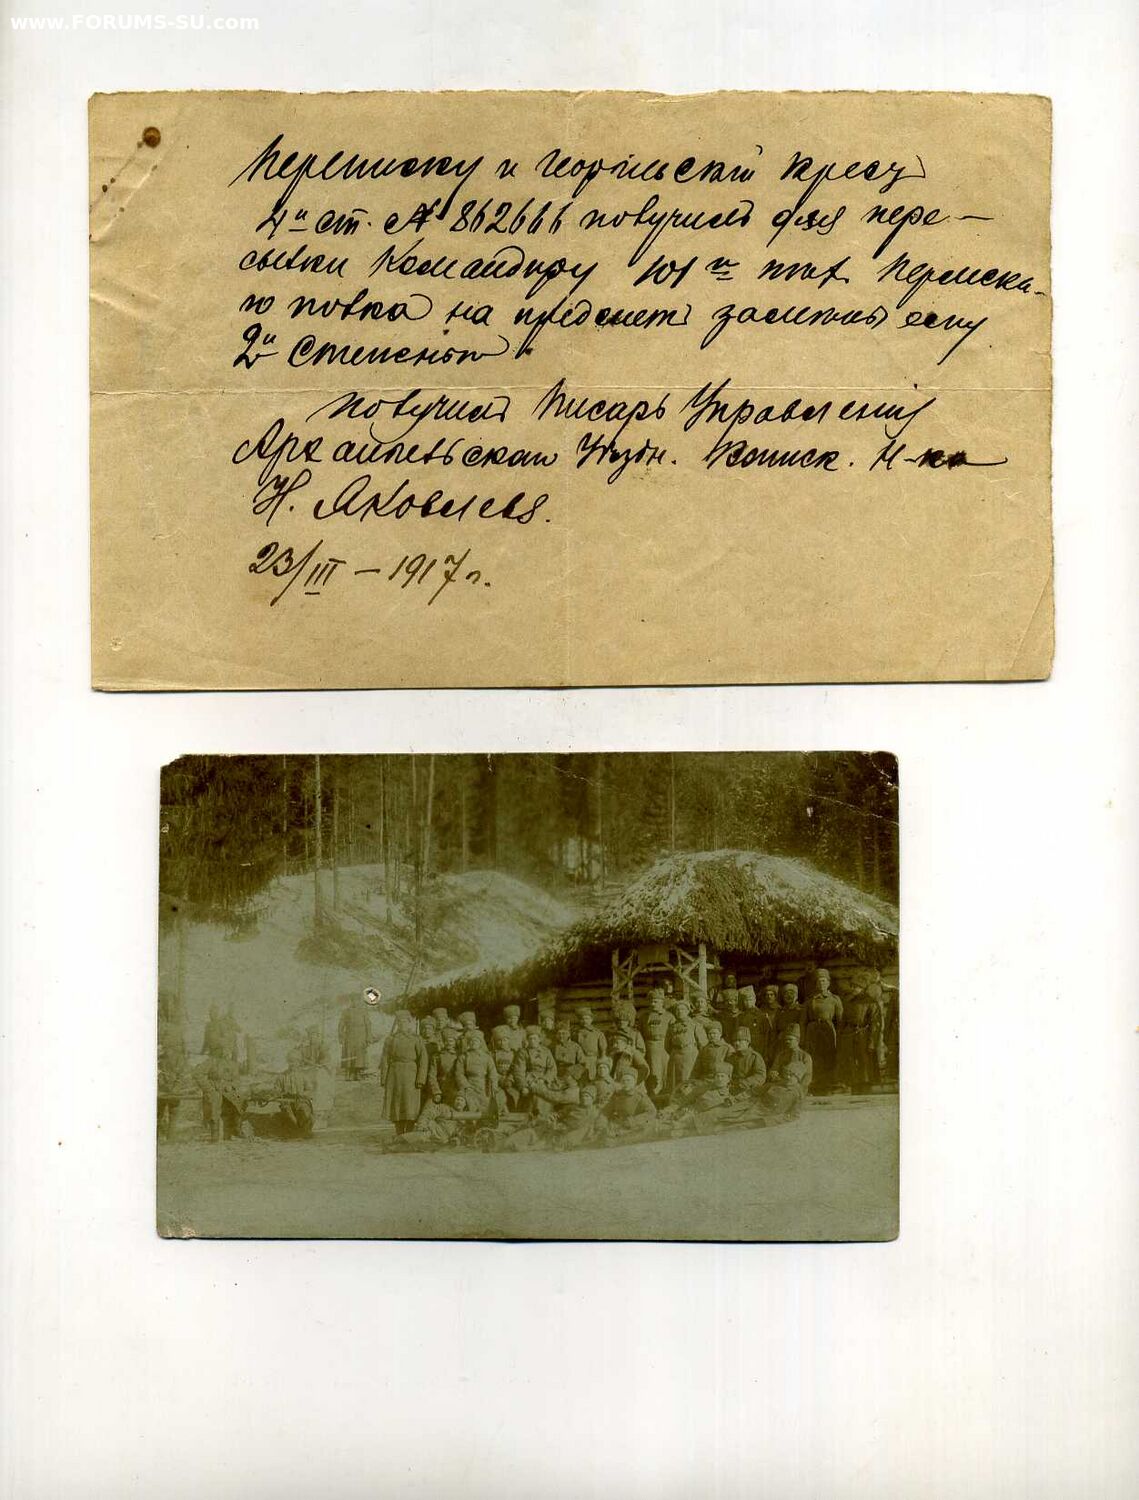 www.FORUMS-SU.com
Переписку и Георгіевскій крестъ
4й ст. № 862666 получилъ для пере-
сылки Командиру 101го пѣх. Пермска-
го полка на предметъ замѣны ему
2й степенью
Получилъ Писарь Управленія
Архангельскаго Уѣздн. Воинск. Н-ка
Н. Яковлевъ.
23/III – 1917 г.